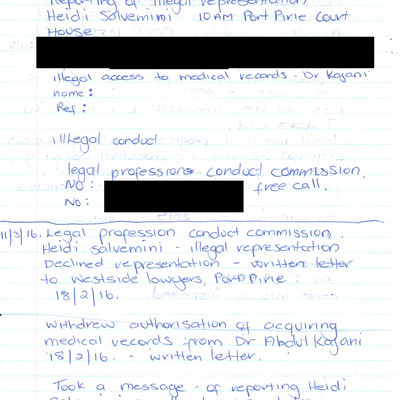 Reporting of illegal representation
Heidi Salvemini 10AM Port Pirie Court
House
illegal access to medical records - Dr Kajani
name:
Ref:
illegal conduct
legal professions conduct commission.
NO: free call.
No:
11/3/16. Legal profession conduct commission.
Heidi Salvemini - illegal representation
Declined representation - written letter
to Westside lawyers, Port Pirie
18/2/16.
withdrew authorisation of acquiring
medical records from Dr Abdul Kajani
18/2/16. - written letter.
Took a message - of reporting Heidi